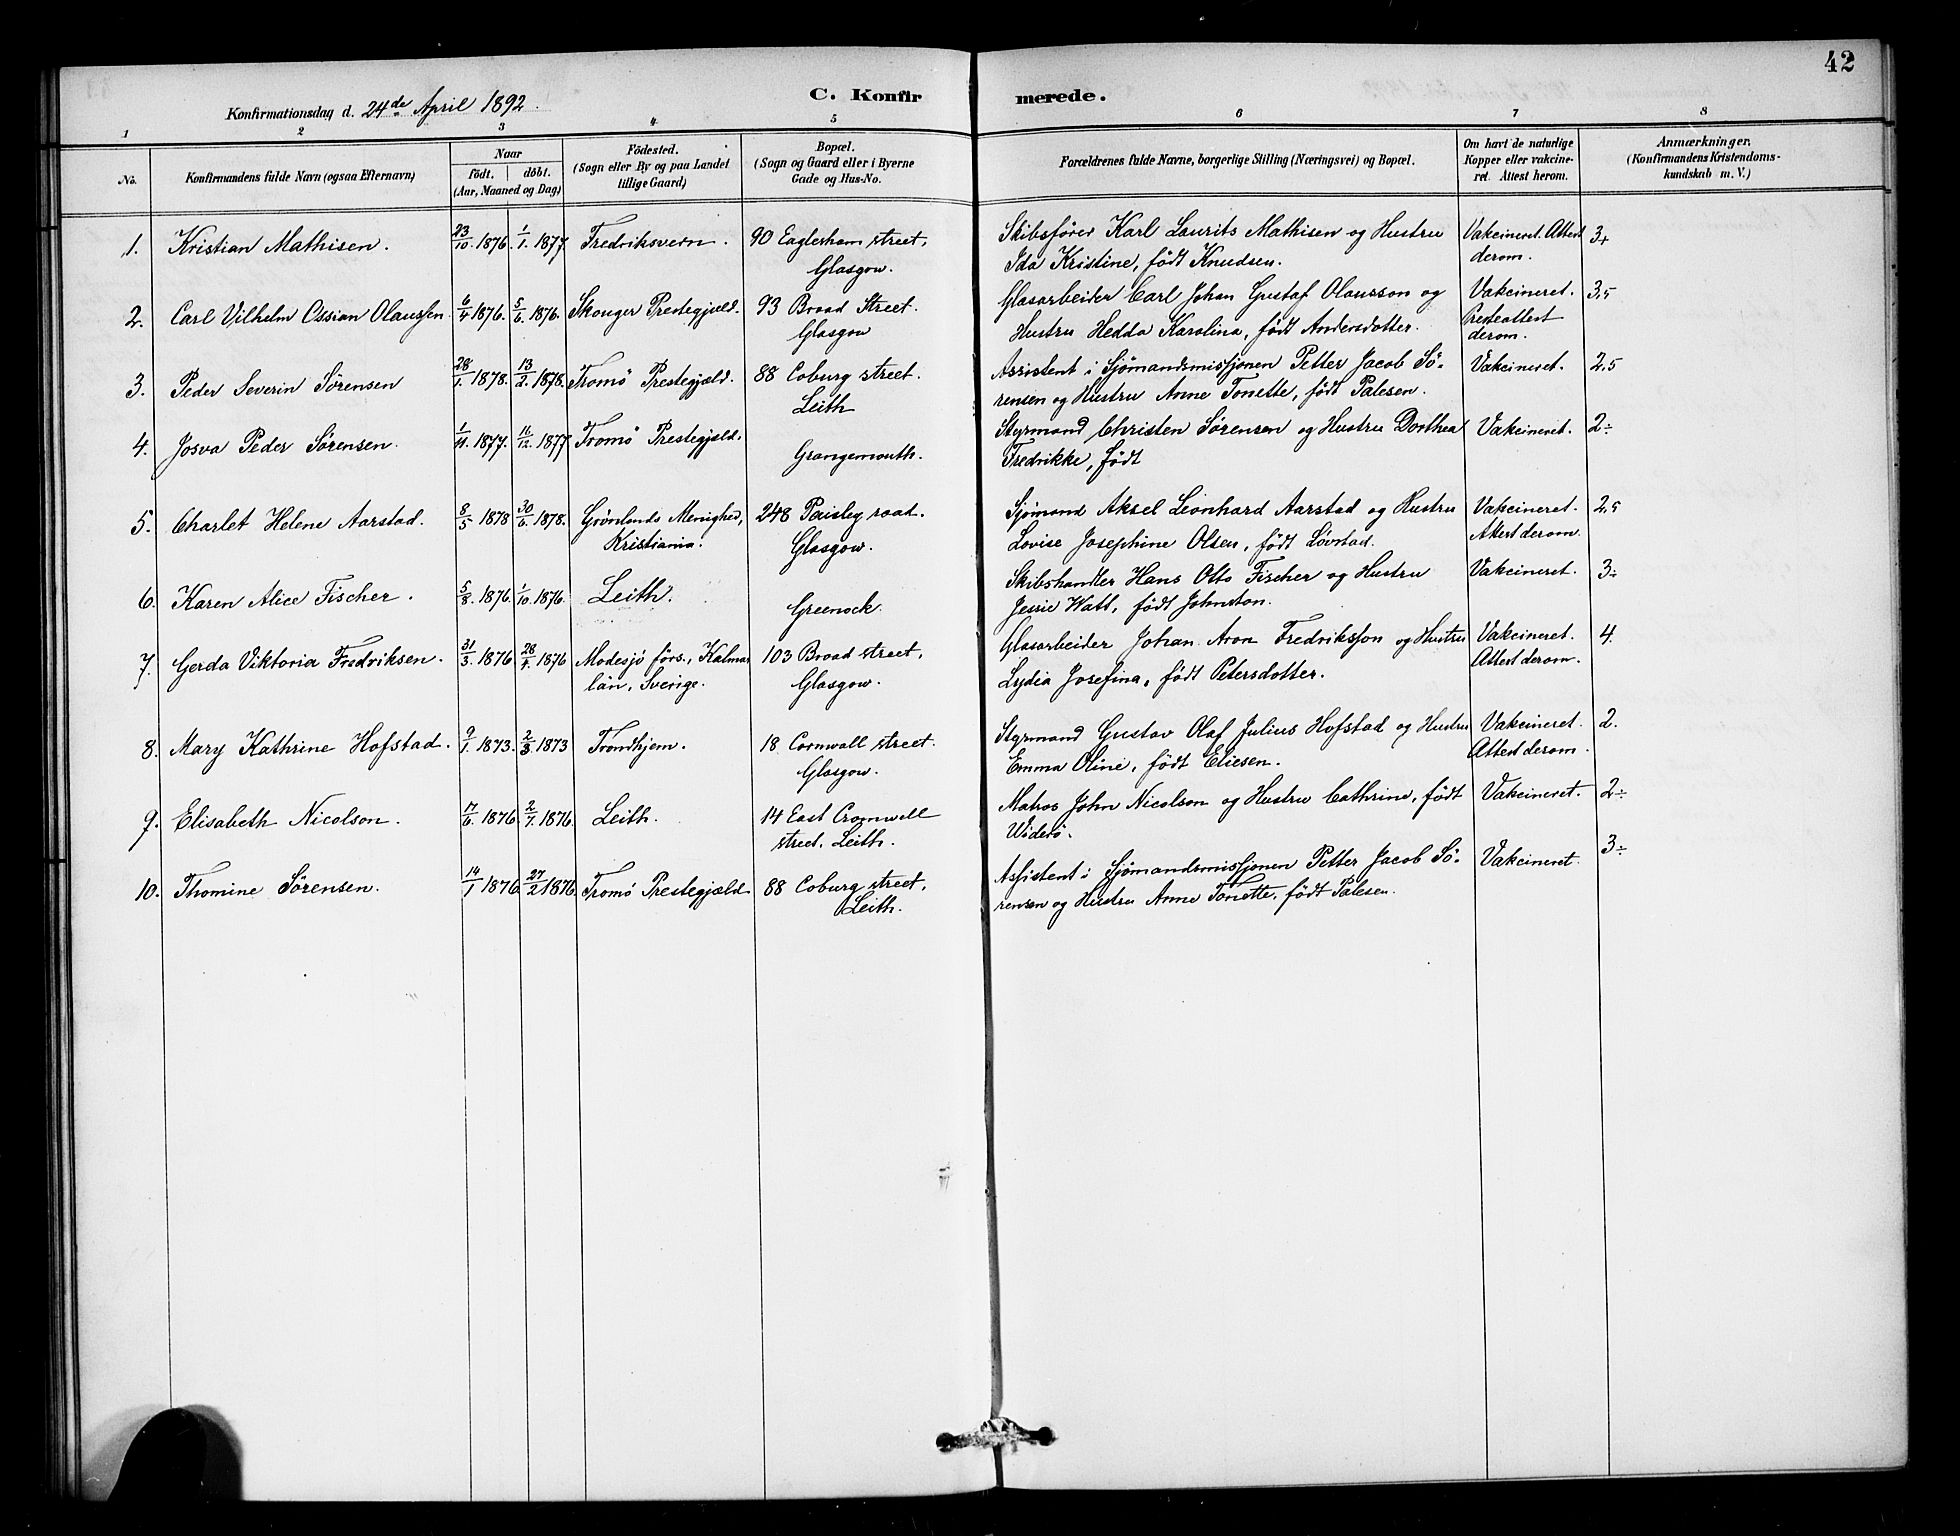 42
Konfirmationsdag d. 24de April 1892.
C. Konfirmerede.
1 2 3 4 5 6 7 8
No.
Konfirmandens fulde Navn (ogsaa Efternavn)
Naar
födt. döbt.
(Aar, Maaned og Dag)
Födested.
(Sogn eller By og paa Landet
tillige Gaard)
Bopæl.
(Sogn og Gaard eller i Byerne
Gade og Hus-No.
Forældrenes fulde Navne, borgerlige Stilling (Næringsvei) og Bopæl.
Om havt de naturlige
Kopper eller vakcine-
ret. Attest herom.
Anmærkninger.
(Konfirmandens Kristendoms-
kundskab m. V.)
1. Kristian Mathisen. 23/10 1876. 1/1 1877. Fredriksvern. 90 Eaglesham street, Skibsförer Karl Laurits Mathisen og Hustru Vakcineret. Attest 3+
Glasgow. Ida Kristine, födt Knudsen. derom.
2. Carl Vilhelm Ossian Olaussen 6/4 1876. 5/6 1876. Skouger Prestegjæld. 93 Broad Street. Glasarbeider Carl Johan Gustaf Olausson og Vakcineret. 3,5
Glasgow Hustru Hedda Karolina, födt Andersdotter. Presteattest
derom.
3. Peder Severin Sørensen 28/1 1878. 13/2 1878. Tromö Prestegjæld. 88 Coburg street. Assistent i Sjömandsmissjonen Petter Jacob Sö- Vakcineret. 2,5
Leith rensen og Hustru Anne Tonette, födt Palesen.
4. Josva Peder Sørensen. 1/11 1877. 11/12 1877 Tromö Prestegjæld. Grangemouth. Styrmand Christen Sørensen og Hustru Dorthea Vakcineret. 2÷
Fredrikke, födt
5. Charlet Helene Aarstad. 8/5 1878 30/6 1878. Grönlands Menighed, 248 Paisley road. Sjömand Aksel Leonhard Aarstad og Hustru Vakcineret. 2,5
Kristiania. Glasgow. Lovise Josephine Olsen, födt Lövstad. Attest derom
6. Karen Alice Fischer. 5/8 1876. 1/10 1876. Leith. Greenock. Skibshandler Hans Otto Fischer og Hustru Vakcineret. 3÷
Jessie Watt, födt Johnston.
7. Gerda Viktoria Fredriksen. 31/3 1876 28/4 1876 Modesjö förs., Kalmar 103 Broad street, Glasarbeider Johan Aron Fredriksson og Hustru Vakcineret. 4.
län, Sverige. Glasgow. Lydia Josefina, födt Petersdotter. Attest derom.
8. Mary Kathrine Hofstad. 9/1 1873. 2/3 1873 Trondhjem. 18 Cornwall street. Styrmand Gustav Olaf Julius Hofstad og Hustru Vakcineret. 2.
Glasgow. Emma Oline, födt Eliesen. Attest derom.
9. Elisabeth Nicolson. 17/6 1876. 2/7 1876. Leith. 14 East Cromwell Matros John Nicolson og Hustru Cathrine, födt Vakcineret. 2÷
street. Leith. Widerö.
10. Thomine Sørensen. 14/1 1876 27/2 1876. Tromö Prestegjæld 88 Coburg street, Assistent i Sjömandsmissjonen Petter Jacob Sö- Vakcineret. 3÷
Leith. rensen og Hustru Anne Tonette, födt Palesen.